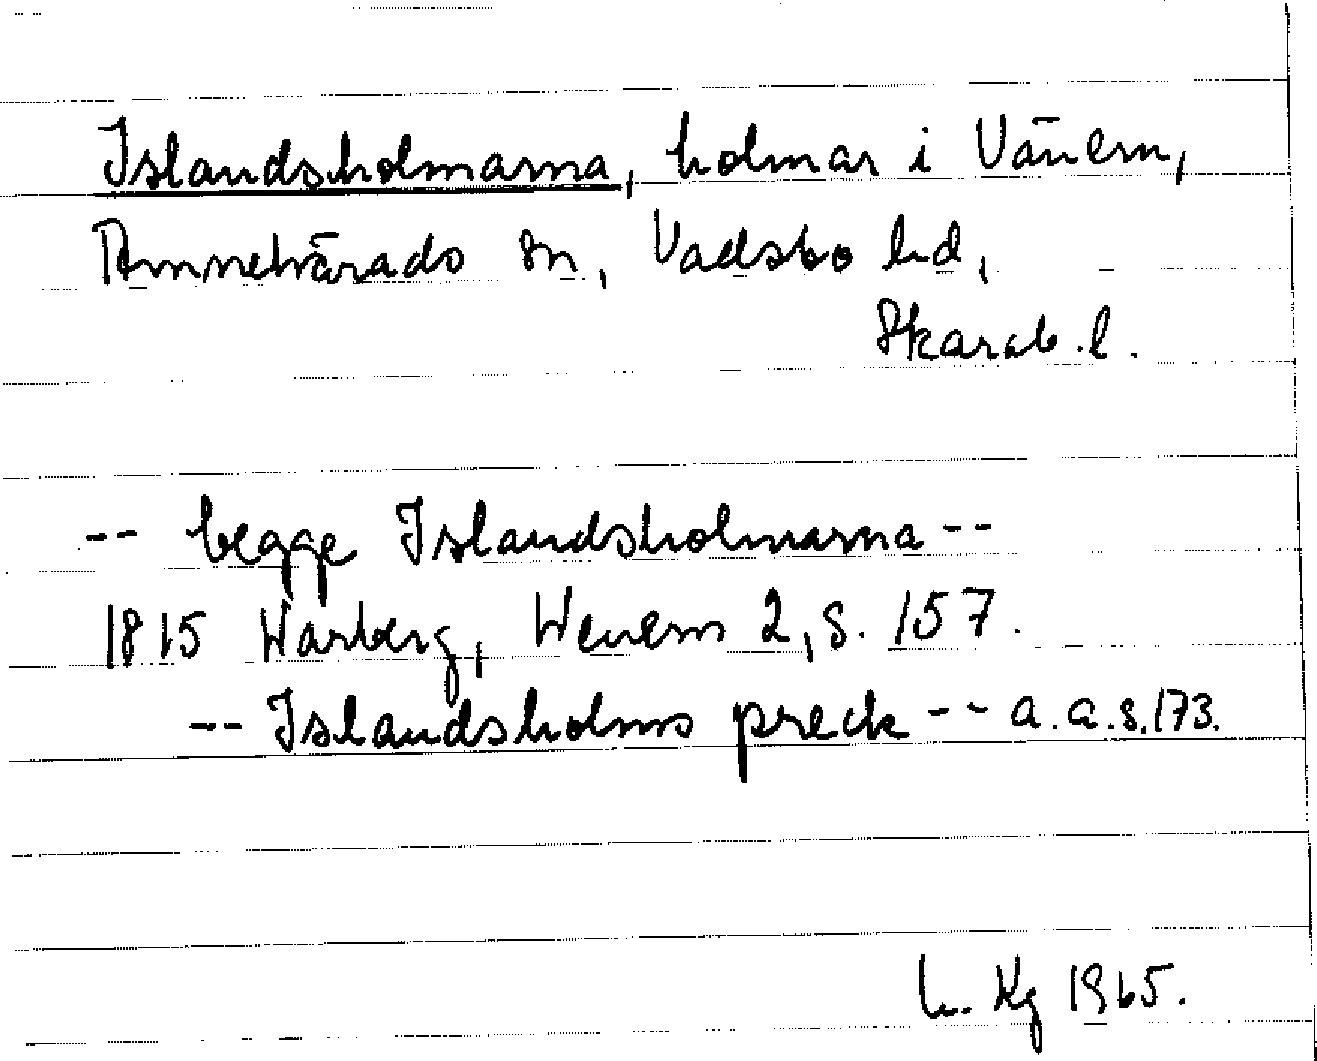 Islandsholmarna, holmar i Vänern,
Amnehärads sn, Vadsbo hd,
Skarab. l.
-- begge Islandsholmarna --
1815 Warberg, Wenern 2, s. 157.
-- Islandsholms preck -- a. a. s. 173.
L. Kg 1965.